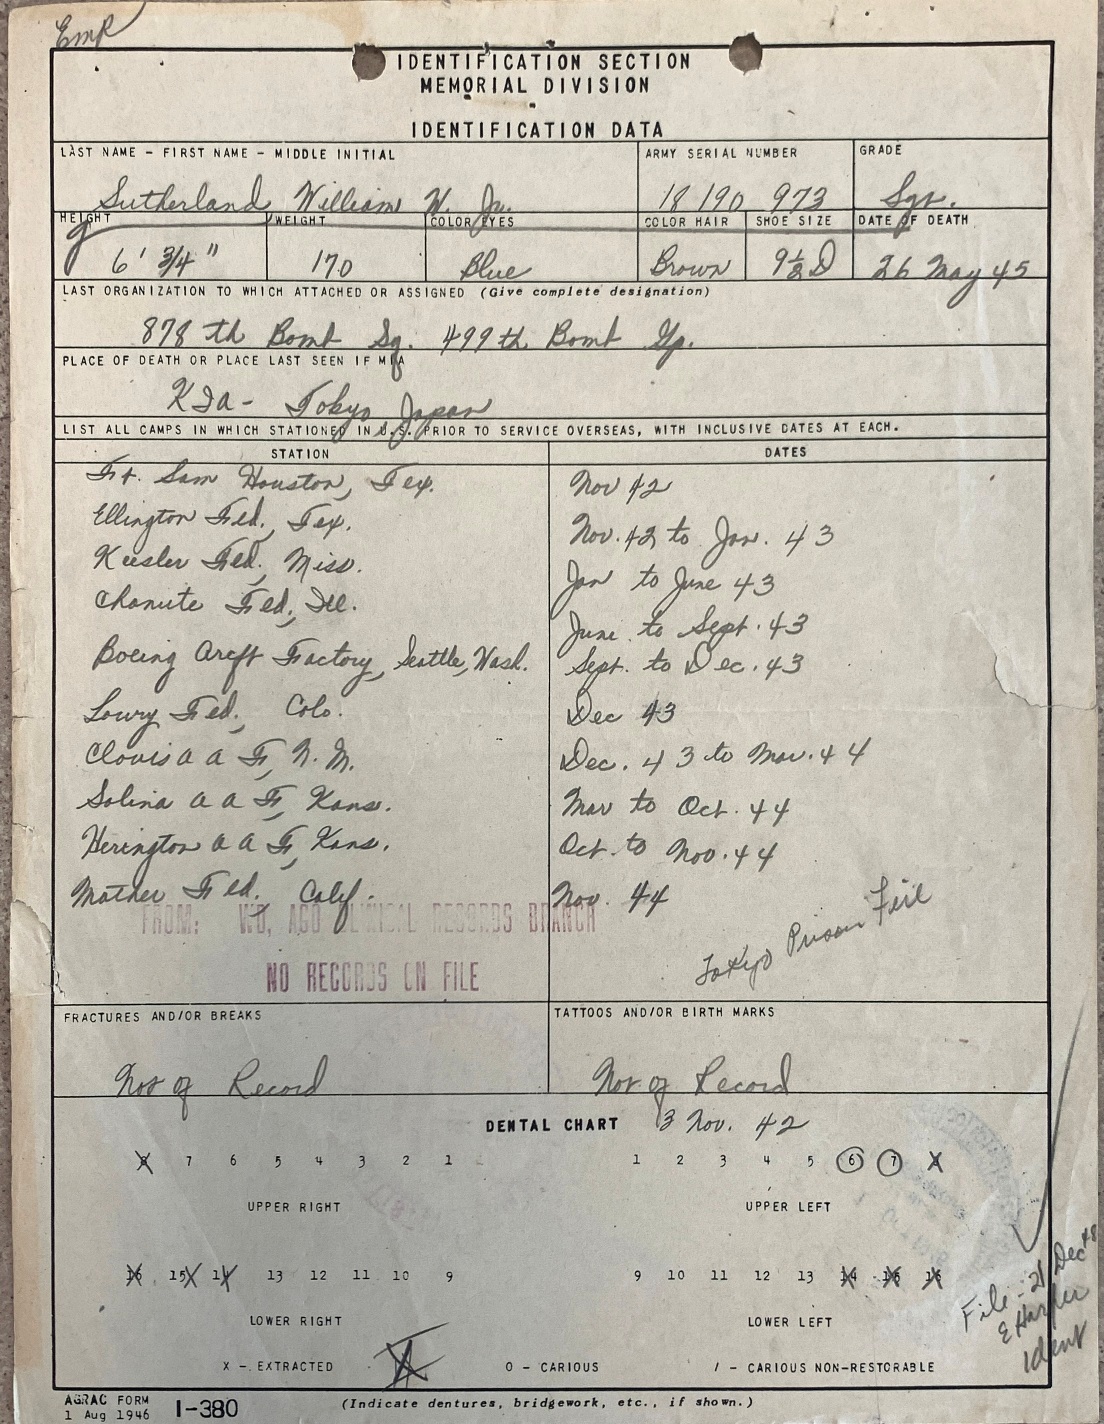 Emp
IDENTIFICATION SECTION
MEMORIAL DIVISION
IDENTIFICATION DATA
LAST NAME - FIRST NAME - MIDDLE INITIAL ARMY SERIAL NUMBER GRADE
Sutherland William W. Jr. 18 190 973 Sgt.
HEIGHT WEIGHT COLOR EYES COLOR HAIR SHOE SIZE DATE OF DEATH
6' 3/4" 170 Blue Brown 9½ D 26 May 45
LAST ORGANIZATION TO WHICH ATTACHED OR ASSIGNED (Give complete designation)
878 th Bomb Sq. 499 th Bomb Gp.
PLACE OF DEATH OR PLACE LAST SEEN IF MIA
KIA - Tokyo Japan
LIST ALL CAMPS IN WHICH STATIONED IN U.S. PRIOR TO SERVICE OVERSEAS, WITH INCLUSIVE DATES AT EACH.
STATION DATES
Ft. Sam Houston, Tex. Nov 42
Ellington Fld, Tex. Nov. 42 to Jan. 43
Keesler Fld, Miss. Jan to June 43
Chanute Fld, Ill. June to Sept. 43
Boeing Arcft Factory, Seattle, Wash. Sept. to Dec. 43
Lowry Fld, Colo. Dec 43
Clovis A A F, N. M. Dec. 43 to Mar. 44
Salina A A F, Kans. Mar to Oct. 44
Herington A A F, Kans. Oct. to Nov. 44
Mather Fld, Calif. Nov. 44
FROM: WD, AGO CLINICAL RECORDS BRANCH
NO RECORDS ON FILE
Tokyo Prison Fire
FRACTURES AND/OR BREAKS TATTOOS AND/OR BIRTH MARKS
Not of Record Not of Record
DENTAL CHART 3 Nov. 42
8 7 6 5 4 3 2 1 1 2 3 4 5 6 7 8
UPPER RIGHT UPPER LEFT
16 15 14 13 12 11 10 9 9 10 11 12 13 14 15 16
LOWER RIGHT LOWER LEFT
X - EXTRACTED O - CARIOUS / - CARIOUS NON-RESTORABLE
File - 21 Dec 48
E Harper
Ident
AGRAC FORM
1 Aug 1946 1-380 (Indicate dentures, bridgework, etc., if shown.)